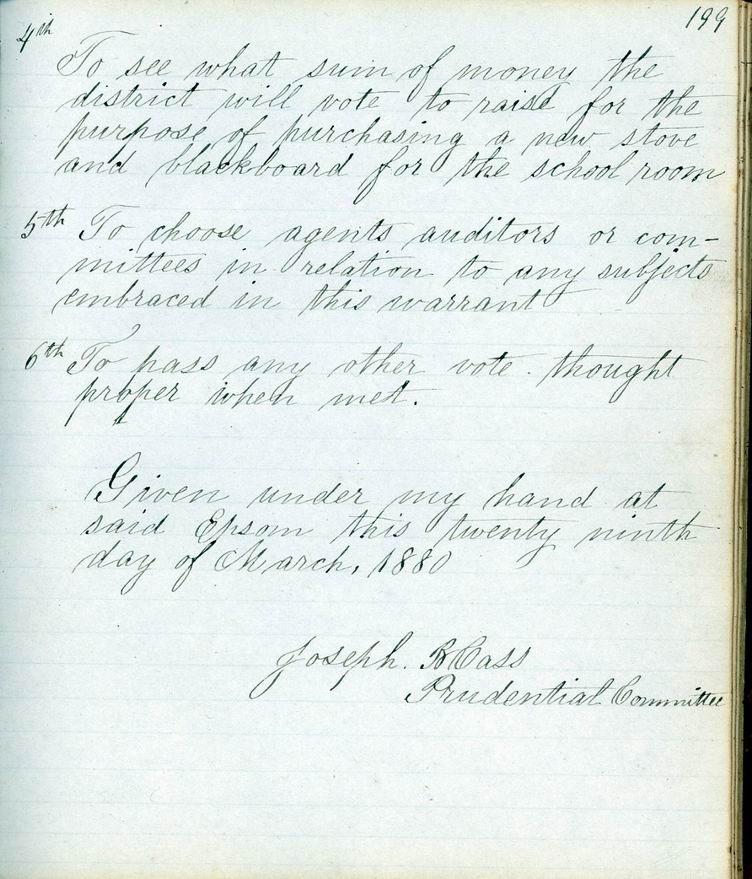 199
4th
To see what sum of money the
district will vote to raise for the
purpose of purchasing a new stove
and blackboard for the school room
5th To choose agents auditors or com-
mittees in relation to any subjects
embraced in this warrant
6th To pass any other vote thought
proper when met.
Given under my hand at
said Epsom this twenty ninth
day of March, 1880
Joseph. B Cass
Prudential Committee